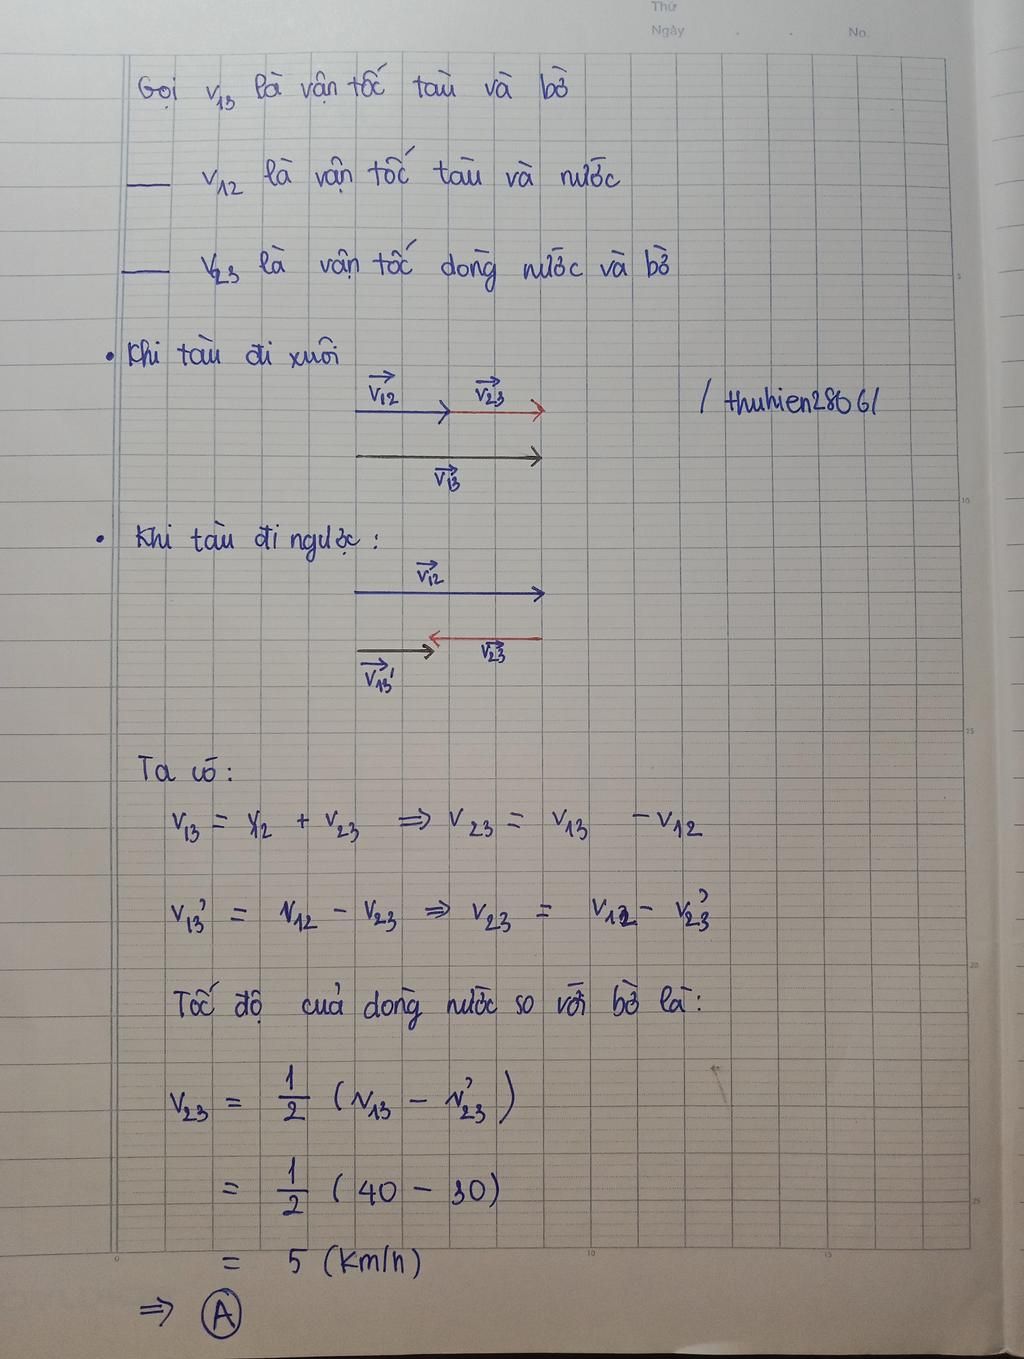 Thứ
Ngày . . No.
Gọi v₁₃ là vận tốc tàu và bờ
— v₁₂ là vận tốc tàu và nước
— v₂₃ là vận tốc dòng nước và bờ
• Khi tàu đi xuôi
v₁₂ v₂₃
/ thuhien2806/
v₁₃
• Khi tàu đi ngược :
v₁₂
v₂₃
v₁₃'
Ta có :
v₁₃ = v₁₂ + v₂₃ ⇒ v₂₃ = v₁₃ - v₁₂
v₁₃' = v₁₂ - v₂₃ ⇒ v₂₃ = v₁₂ - v₂₃'
Tốc độ của dòng nước so với bờ là :
v₂₃ = 1/2 (v₁₃ - v₂₃')
= 1/2 (40 - 30)
= 5 (km/h)
⇒ A